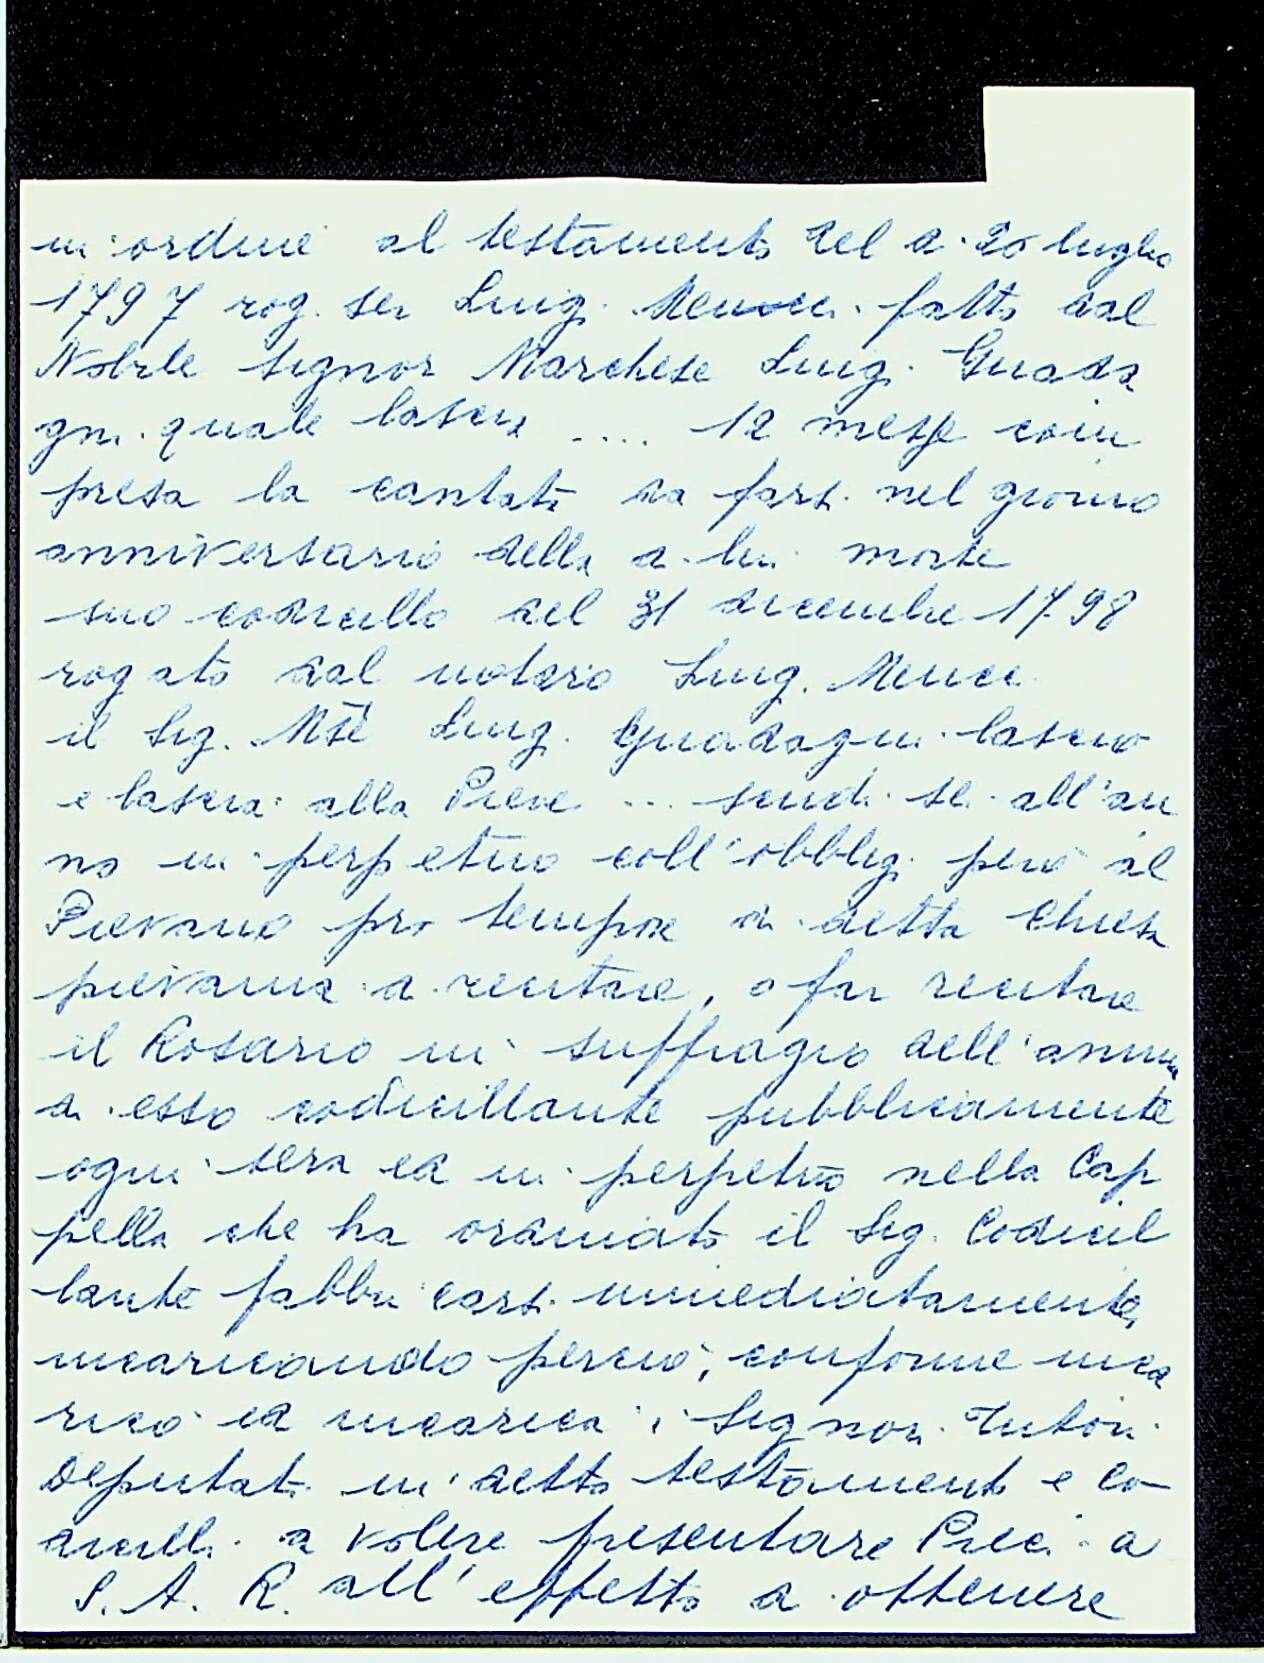 in ordine al testamento del d. 20 luglio
1797 rog. ser Luigi Menici fatto dal
Nobile Signor Marchese Luigi Guada
gni quale lascia .... 12 messe com
presa la cantata da farsi nel giorno
anniversario della di lui morte
suo codicillo del 31 dicembre 1798
rogato dal notaro Luigi
il Sig. Mse Luigi Guadagni lascio
e lascia alla Pieve ... scudi sei all'an
no in perpetuo coll'obbligo però al
Pievano pro tempore di detta Chiesa
pievania a recitare, o far recitare
il Rosario in suffragio dell'anima
di esso codicillante pubblicamente
ogni sera ed in perpetuo nella Cap
pella che ha ordinato il Sig. Codicil
lante fabbricarsi immediatamente,
incaricando perciò, conforme inca
ricò ed incarica i Signori Tutori
Deputati in detto testamento e co-
dicilli a volere presentare Preci a
S. A. R. all'effetto di ottenere